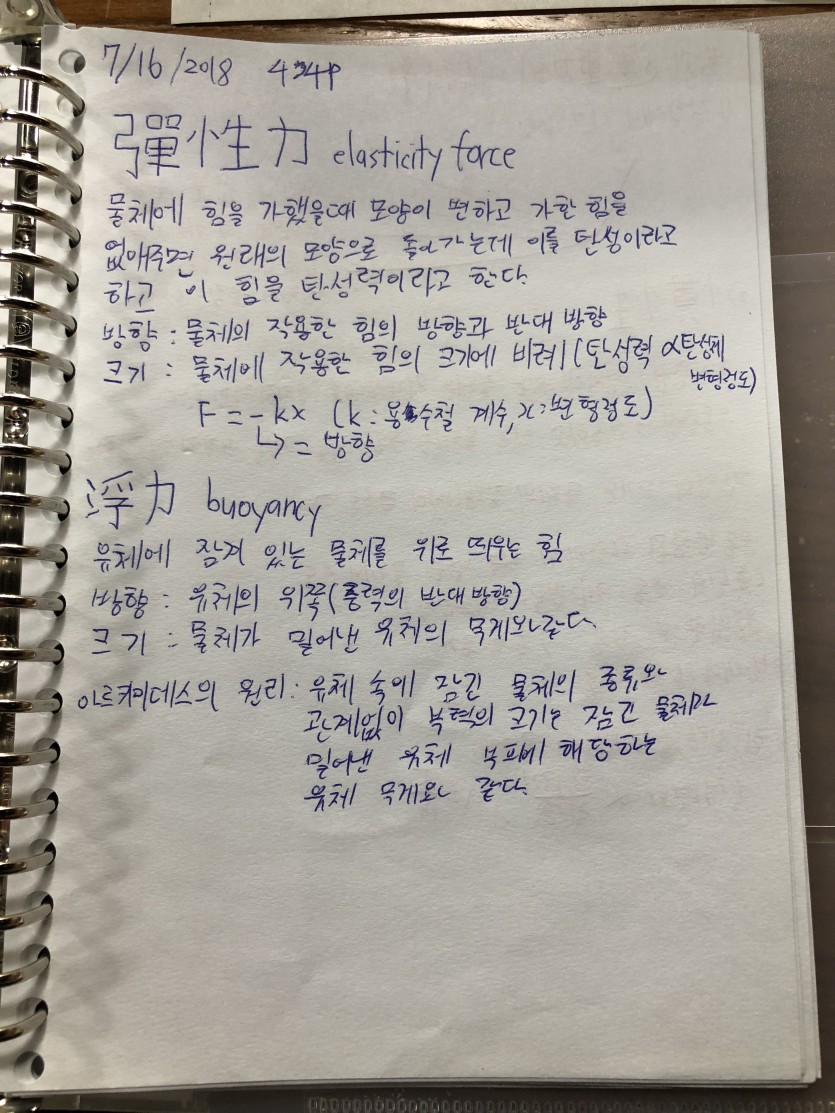 7/16/2018 4:34p
彈性力 elasticity force
물체에 힘을 가했을때 모양이 변하고 가한 힘을
없애주면 원래의 모양으로 돌아가는데 이를 탄성이라고
하고 이 힘을 탄성력이라고 한다.
방향 : 물체의 작용한 힘의 방향과 반대 방향
크기 : 물체에 작용한 힘의 크기에 비례 (탄성력 ∝ 탄성체
변형정도)
F = -kx (k : 용수철 계수, x : 변형정도)
↳ = 방향
浮力 buoyancy
유체에 잠겨 있는 물체를 위로 띄우는 힘
방향 : 유체의 위쪽 (중력의 반대 방향)
크기 : 물체가 밀어낸 유체의 무게와 같다.
아르키메데스의 원리 : 유체 속에 잠긴 물체의 종류와
관계없이 부력의 크기는 잠긴 물체가
밀어낸 유체 부피에 해당하는
유체 무게와 같다.